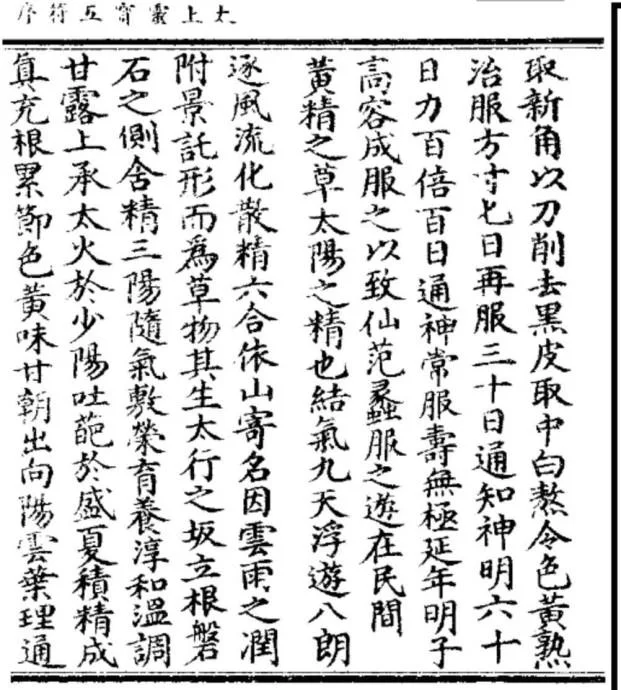 太上靈寶五符序
取新角以刀削去黑皮取中白熬令色黃熟
治服方寸匕日再服三十日通知神明六十
日力百倍百日通神常服壽無極延年明子
高容成服之以致仙范蠡服之遊在民間
黃精之草太陽之精也結氣九天浮遊八朗
逐風流化散精六合依山寄名因雲雨之潤
附景託形而爲草物其生太行之坂立根磐
石之側舍精三陽隨氣敷榮育養淳和溫調
甘露上承太火於少陽吐葩於盛夏積精成
眞充根累節色黃味甘朝出向陽雲葉理通